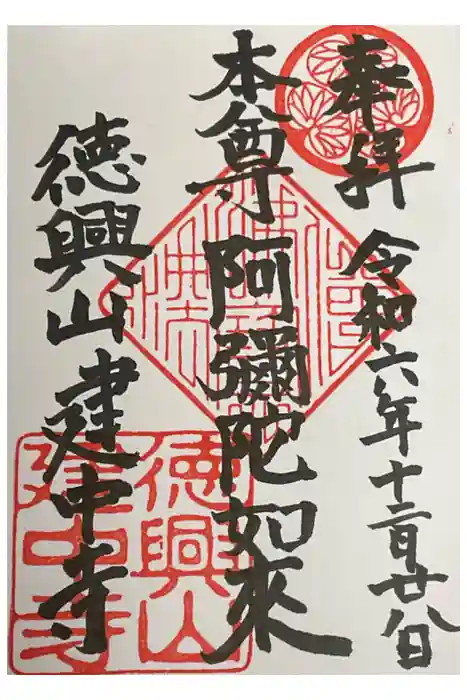 奉拝 令和六年十二月廿八日
本尊 阿彌陀如來
徳興山建中寺
徳興山
建中寺